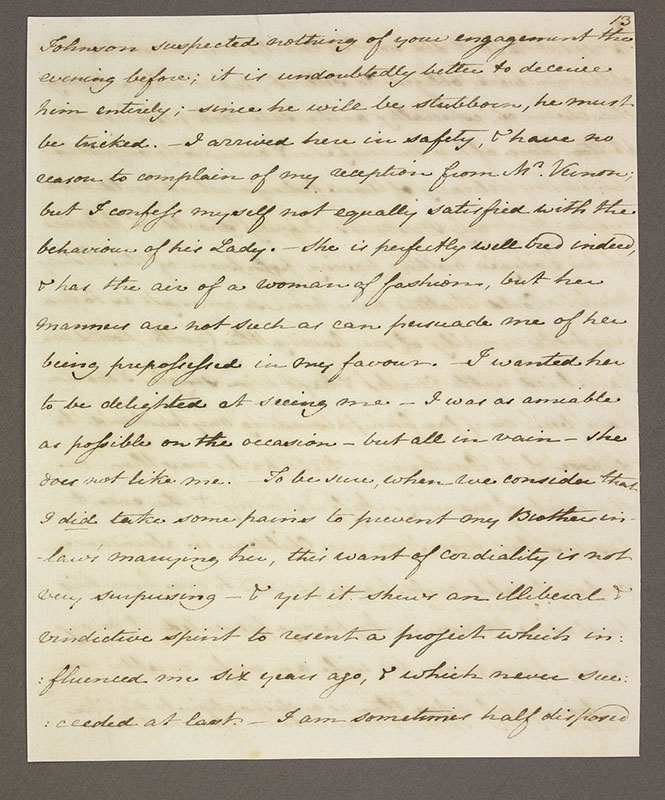 13
Johnson suspected nothing of your engagement the
evening before; it is undoubtedly better to deceive
him entirely; – since he will be stubborn, he must
be tricked. – I arrived here in safety, & have no
reason to complain of my reception from Mr. Vernon;
but I confess myself not equally satisfied with the
behaviour of his Lady. – She is perfectly well bred indeed,
& has the air of a woman of fashion, but her
manners are not such as can persuade me of her
being prepossessed in my favour. – I wanted her
to be delighted at seeing me – I was as amiable
as possible on the occasion – but all in vain – she
does not like me. – To be sure, when we consider that
I did take some pains to prevent my Brother in-
-law's marrying her, this want of cordiality is not
very surprising – & yet it shews an illiberal &
vindictive spirit to resent a project which in:
:fluenced me six years ago, & which never suc:
:ceeded at last. – I am sometimes half disposed